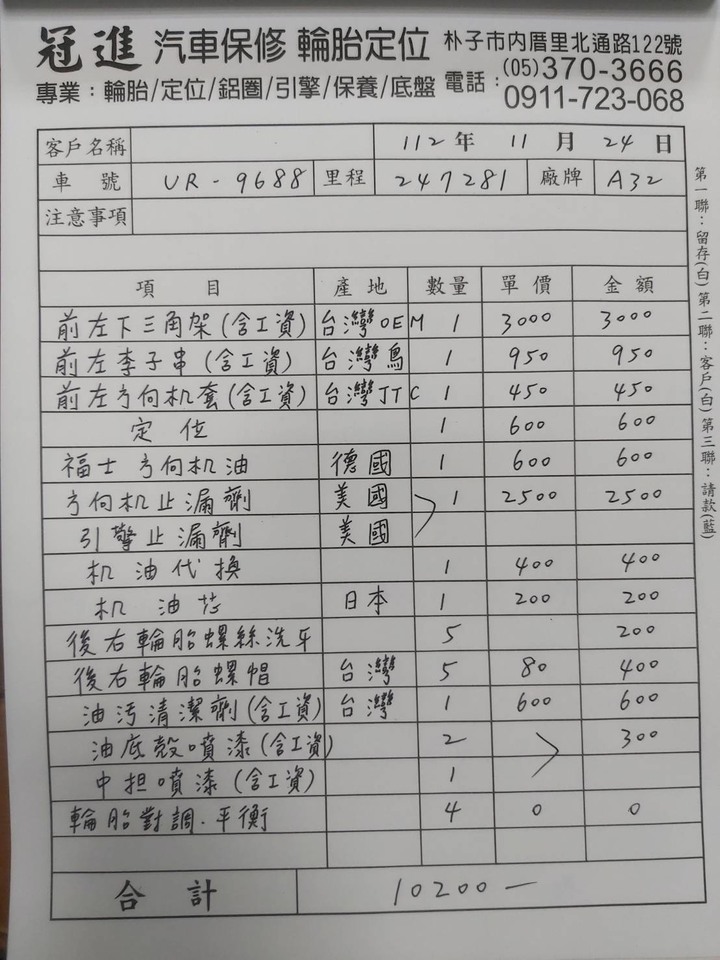 冠進 汽車保修 輪胎定位 朴子市內厝里北通路122號
專業：輪胎/定位/鋁圈/引擎/保養/底盤 電話：(05)370-3666
0911-723-068
客戶名稱 112年 11月 24日
車號 UR-9688 里程 247281 廠牌 A32
注意事項
項目 產地 數量 單價 金額
前左下三角架(含工資) 台灣OEM 1 3000 3000
前左李子串(含工資) 台灣鳥 1 950 950
前左方向机套(含工資) 台灣JTC 1 450 450
定位 1 600 600
福士方向机油 德國 1 600 600
方向机止漏劑 美國 1 2500 2500
引擎止漏劑 美國
机油代換 1 400 400
机油芯 日本 1 200 200
後右輪胎螺絲洗牙 5 200
後右輪胎螺帽 台灣 5 80 400
油污清潔劑(含工資) 台灣 1 600 600
油底殼噴漆(含工資) 2 300
中担噴漆(含工資) 1
輪胎對調.平衡 4 0 0
合計 10200—
第一聯：留存(白)第二聯：客戶(白)第三聯：請款(藍)